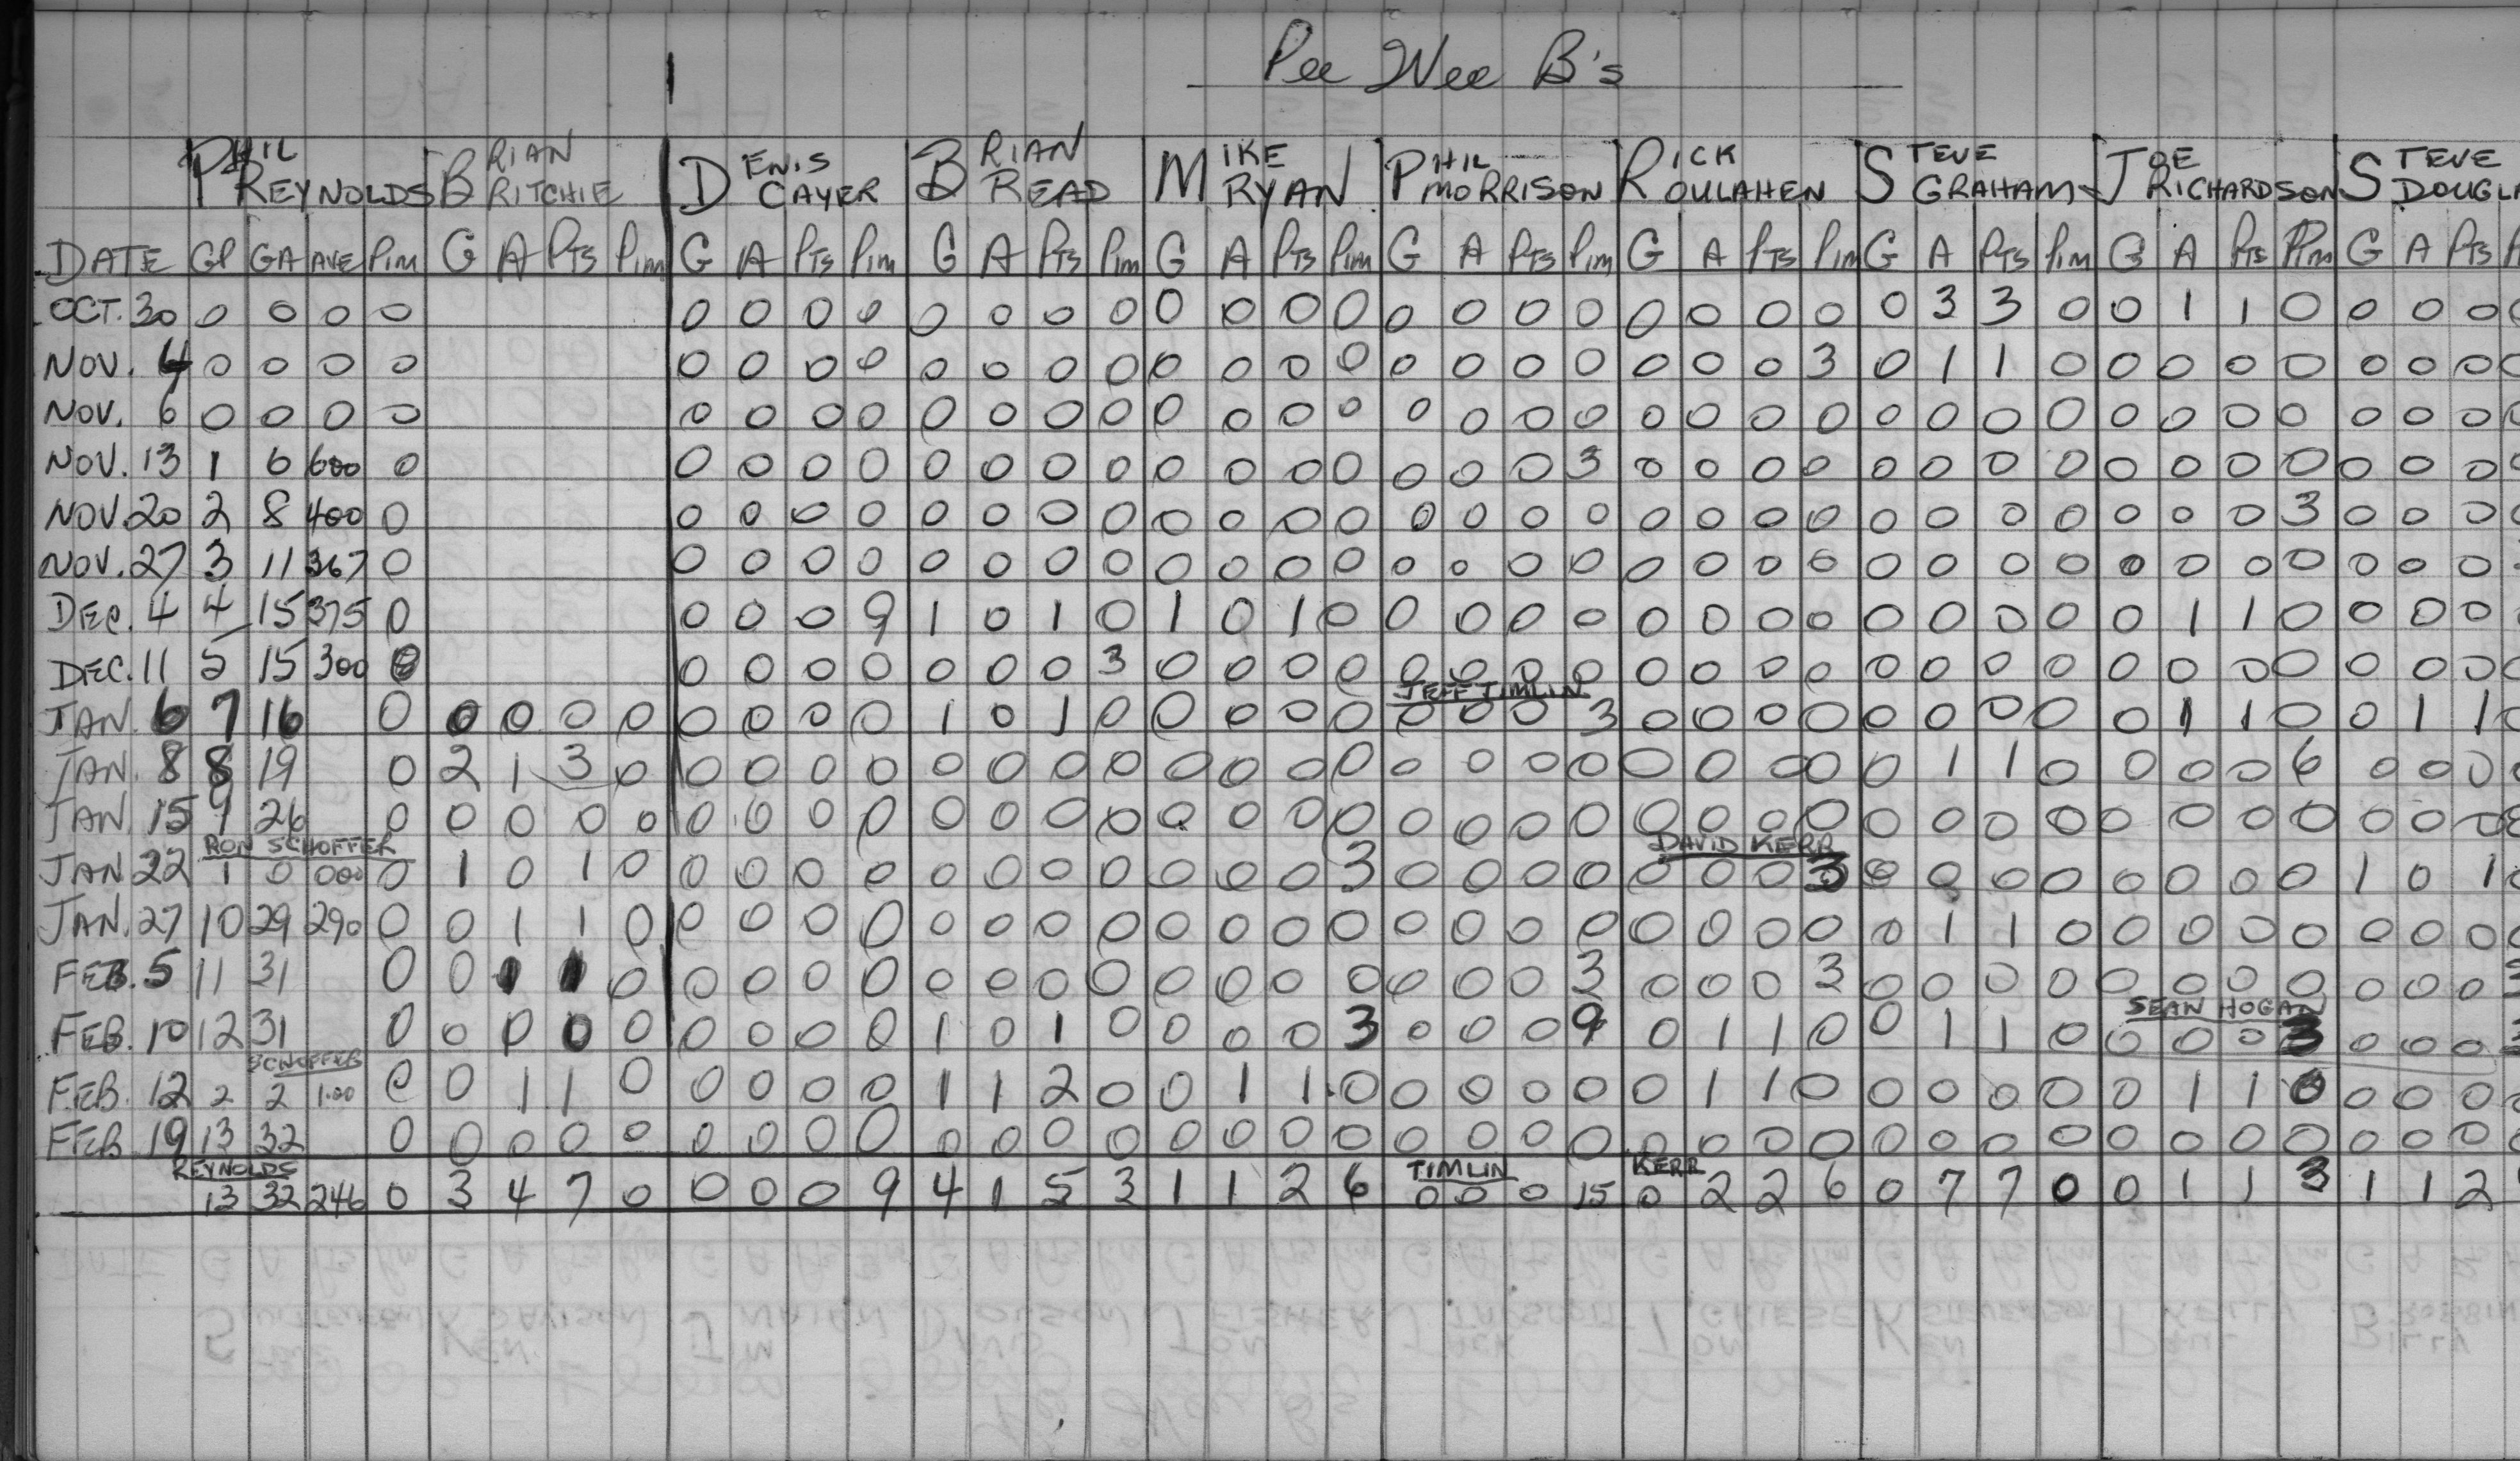 Pee Wee B's
PHIL REYNOLDS BRIAN RITCHIE DENIS CAYER BRIAN READ MIKE RYAN PHIL MORRISON RICK OULAHEN STEVE GRAHAM JOE RICHARDSON STEVE DOUGLA
DATE GP GA AVE Pim G A PTS Pim G A PTS Pim G A PTS Pim G A PTS Pim G A PTS Pim G A PTS Pim G A PTS Pim G A PTS Pim G A PTS
OCT. 30 0 0 0 0 0 0 0 0 0 0 0 0 0 0 0 0 0 0 0 0 0 0 0 0 0 3 3 0 0 1 1 0 0 0 0
NOV. 4 0 0 0 0 0 0 0 0 0 0 0 0 0 0 0 0 0 0 0 0 0 0 0 3 0 1 1 0 0 0 0 0 0 0 0
NOV. 6 0 0 0 0 0 0 0 0 0 0 0 0 0 0 0 0 0 0 0 0 0 0 0 0 0 0 0 0 0 0 0 0 0 0 0
NOV. 13 1 6 600 0 0 0 0 0 0 0 0 0 0 0 0 0 0 0 0 3 0 0 0 0 0 0 0 0 0 0 0 0 0 0 0
NOV. 20 2 8 400 0 0 0 0 0 0 0 0 0 0 0 0 0 0 0 0 0 0 0 0 0 0 0 0 0 0 0 0 3 0 0 0
NOV. 27 3 11 367 0 0 0 0 0 0 0 0 0 0 0 0 0 0 0 0 0 0 0 0 0 0 0 0 0 0 0 0 0 0 0 0
DEC. 4 4 15 375 0 0 0 0 9 1 0 1 0 1 0 1 0 0 0 0 0 0 0 0 0 0 0 0 0 0 1 1 0 0 0 0
DEC. 11 5 15 300 0 0 0 0 0 0 0 0 3 0 0 0 0 0 0 0 0 0 0 0 0 0 0 0 0 0 0 0 0 0 0 0
JEFF TIMLIN
JAN. 6 7 16 0 0 0 0 0 0 0 0 0 1 0 1 0 0 0 0 0 0 0 0 3 0 0 0 0 0 0 0 0 0 1 1 0 0 1 1
JAN. 8 8 19 0 2 1 3 0 0 0 0 0 0 0 0 0 0 0 0 0 0 0 0 0 0 0 0 0 0 1 1 0 0 0 0 6 0 0 0
JAN. 15 9 26 0 0 0 0 0 0 0 0 0 0 0 0 0 0 0 0 0 0 0 0 0 0 0 0 0 0 0 0 0 0 0 0 0 0 0 0
RON SCHOFFER DAVID KERR
JAN 22 1 0 000 0 1 0 1 0 0 0 0 0 0 0 0 0 0 0 0 3 0 0 0 0 0 0 0 3 0 0 0 0 0 0 0 0 1 0 1
JAN. 27 10 29 290 0 0 1 1 0 0 0 0 0 0 0 0 0 0 0 0 0 0 0 0 0 0 0 0 0 0 1 1 0 0 0 0 0 0 0 0
FEB. 5 11 31 0 0 1 1 0 0 0 0 0 0 0 0 0 0 0 0 0 0 0 0 3 0 0 0 3 0 0 0 0 0 0 0 0 0 0 0
SEAN HOGAN
FEB. 10 12 31 0 0 0 0 0 0 0 0 0 1 0 1 0 0 0 0 3 0 0 0 9 0 1 1 0 0 1 1 0 0 0 0 3 0 0 0
SCHOFFER
FEB. 12 2 2 1.00 0 0 1 1 0 0 0 0 0 1 1 2 0 0 1 1 0 0 0 0 0 0 1 1 0 0 0 0 0 0 1 1 0 0 0 0
FEB 19 13 32 0 0 0 0 0 0 0 0 0 0 0 0 0 0 0 0 0 0 0 0 0 0 0 0 0 0 0 0 0 0 0 0 0 0 0 0
REYNOLDS TIMLIN KERR
13 32 246 0 3 4 7 0 0 0 0 9 4 1 5 3 1 1 2 6 0 0 0 15 0 2 2 6 0 7 7 0 0 1 1 3 1 1 2